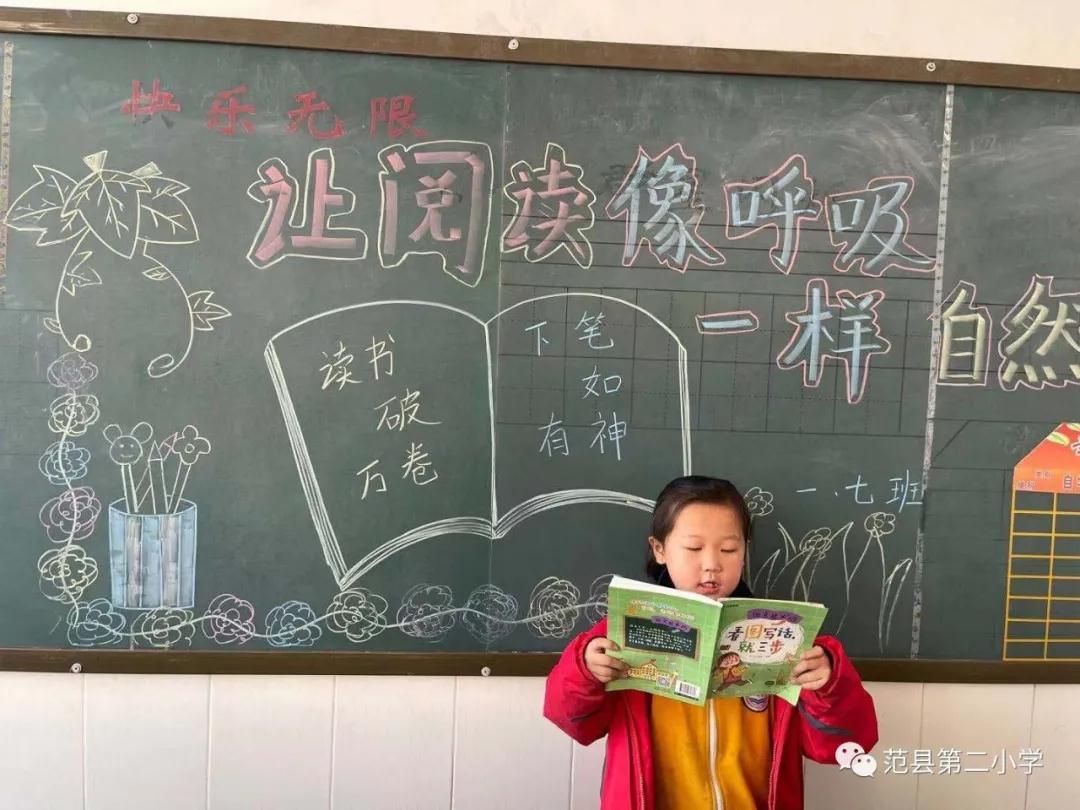 快乐无限
让阅读像呼吸
一样自然
读书
破
万卷
下笔
如
有神
一.七班
看图写话,
就三步
范县第二小学